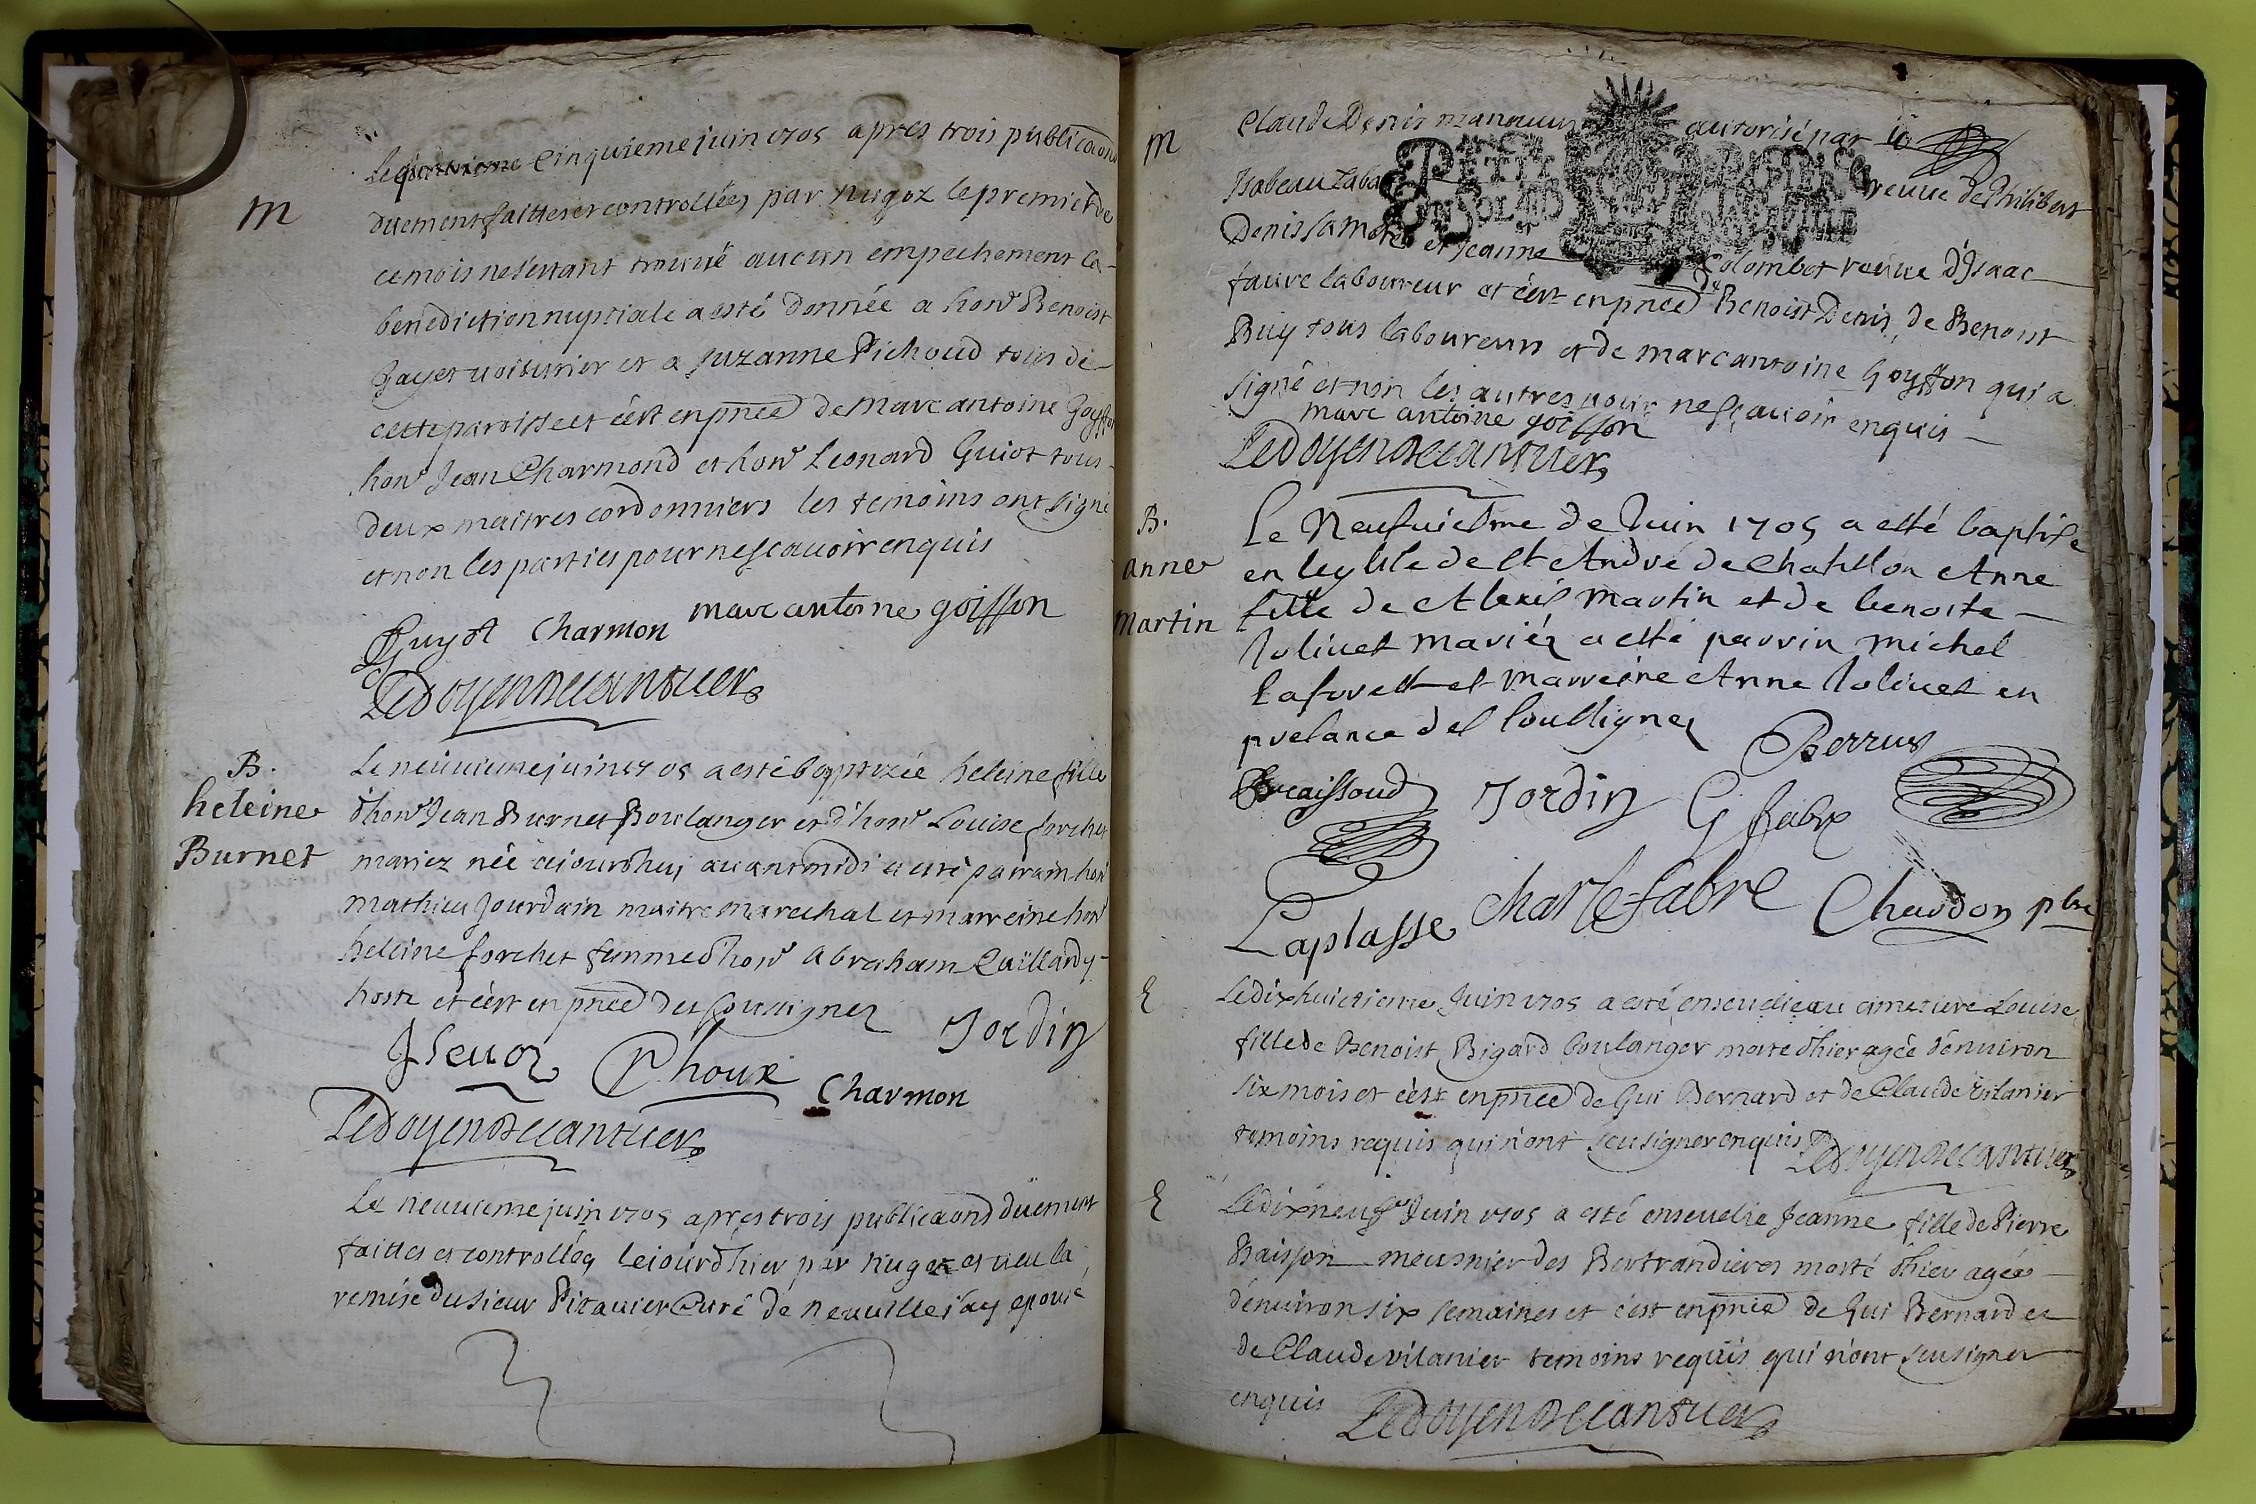 M
Le quatrieme Cinquieme juin 1705 apres trois publicaons
duement faittes et controllées par nugoz le premier de
ce mois ne s'etant trouvé aucun empechement la
benediction nuptiale a esté donnée a hon^e Benoist
Gayet voiturier et a Suzanne Pichoud tous de
cette paroisse et c'est en pnce de Marc antoine Goyffon
hon^e Jean Charmond et hon^e Leonard Guiot tous
deux maitres cordonniers les temoins ont signé
et non les parties pour ne scavoir enquis
Guyot Charmon marc antoine goiffon
Ledoyen Decantuers
B.
heleine
Burnet
Le neuuieme juin 1705 a esté baptizée heleine fille
d'hon^e Jean Burnet Boulanger et d'hon^e Louise forchet
mariez née aiourdhuy auant midi a été parrain hon^e
mathieu Jourdain maitre marechal et marreine hon^e
heleine forchet femme d'hon^e Abraham Caillardy
hoste et c'est en pnce des sousignez
Jordin
Phoux
Charmon
Ledoyen Decantuers
Le neuuieme juin 1705 apres trois publicaons düement
faittes et controlléez le iourdhier par nugoz et ueu la
remise du sieur Pitauier Curé de neuuille i'ay epousé
M
Claude Denis manouurier autorisé par
Isabeau veuue de Philibert
Denis sa mere et Jeanne Colombet veuue d'Isaac
faure laboureur et c'est en pnce de Benoist Denis, de Benoist
Buy tous laboureurs et de marc antoine Goyffon qui a
signé et non les autres pour ne scauoir enquis
marc antoine goiffon
Ledoyen Decantuers
B.
anne
Martin
Le Neufuiesme de Juin 1705 a esté baptisé
en leglise de St André de Chatillon Anne
fille de Alexis Martin et de benoite
Joliuet mariéz a esté parrin michel
Laforest et Marreine Anne Joliuet en
presance des soussignez
Perrus
Jordin G fabre
Laplasse Charle fabre Chardon pbre
E
Le dix huictieme Juin 1705 a esté enseuelie au cimetiere Louise
fille de Benoist Bigard boulanger morte d'hier agée d'enuiron
six mois et c'est en pnce de Gui Bernard et de Claude vilanier
temoins requis qui n'ont sceu signer enquis Ledoyen Decantuers
E
Le dix neufe Juin 1705 a esté enseuelie Jeanne fille de Pierre
Baisson meusnier des Bertrandieres morte d'hier agée
d'enuiron six semaines et c'est en pnce de Gui Bernard et
de Claude vilanier temoins requis qui n'ont sceu signer
enquis Ledoyen Decantuers